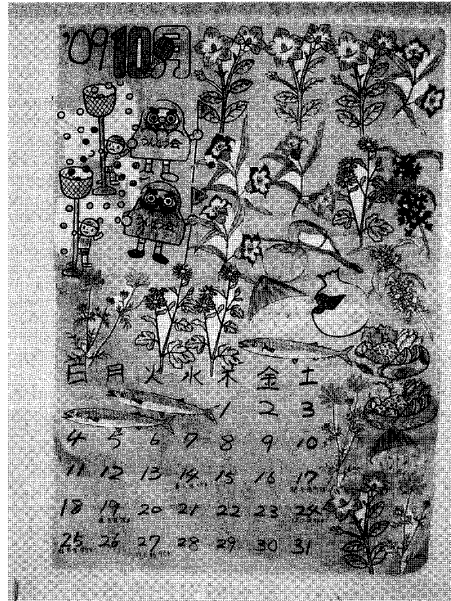 '09 10月
日 月 火 水 木 金 土
1 2 3
4 5 6 7 8 9 10
11 12 13 14 15 16 17
18 19 20 21 22 23 24
25 26 27 28 29 30 31